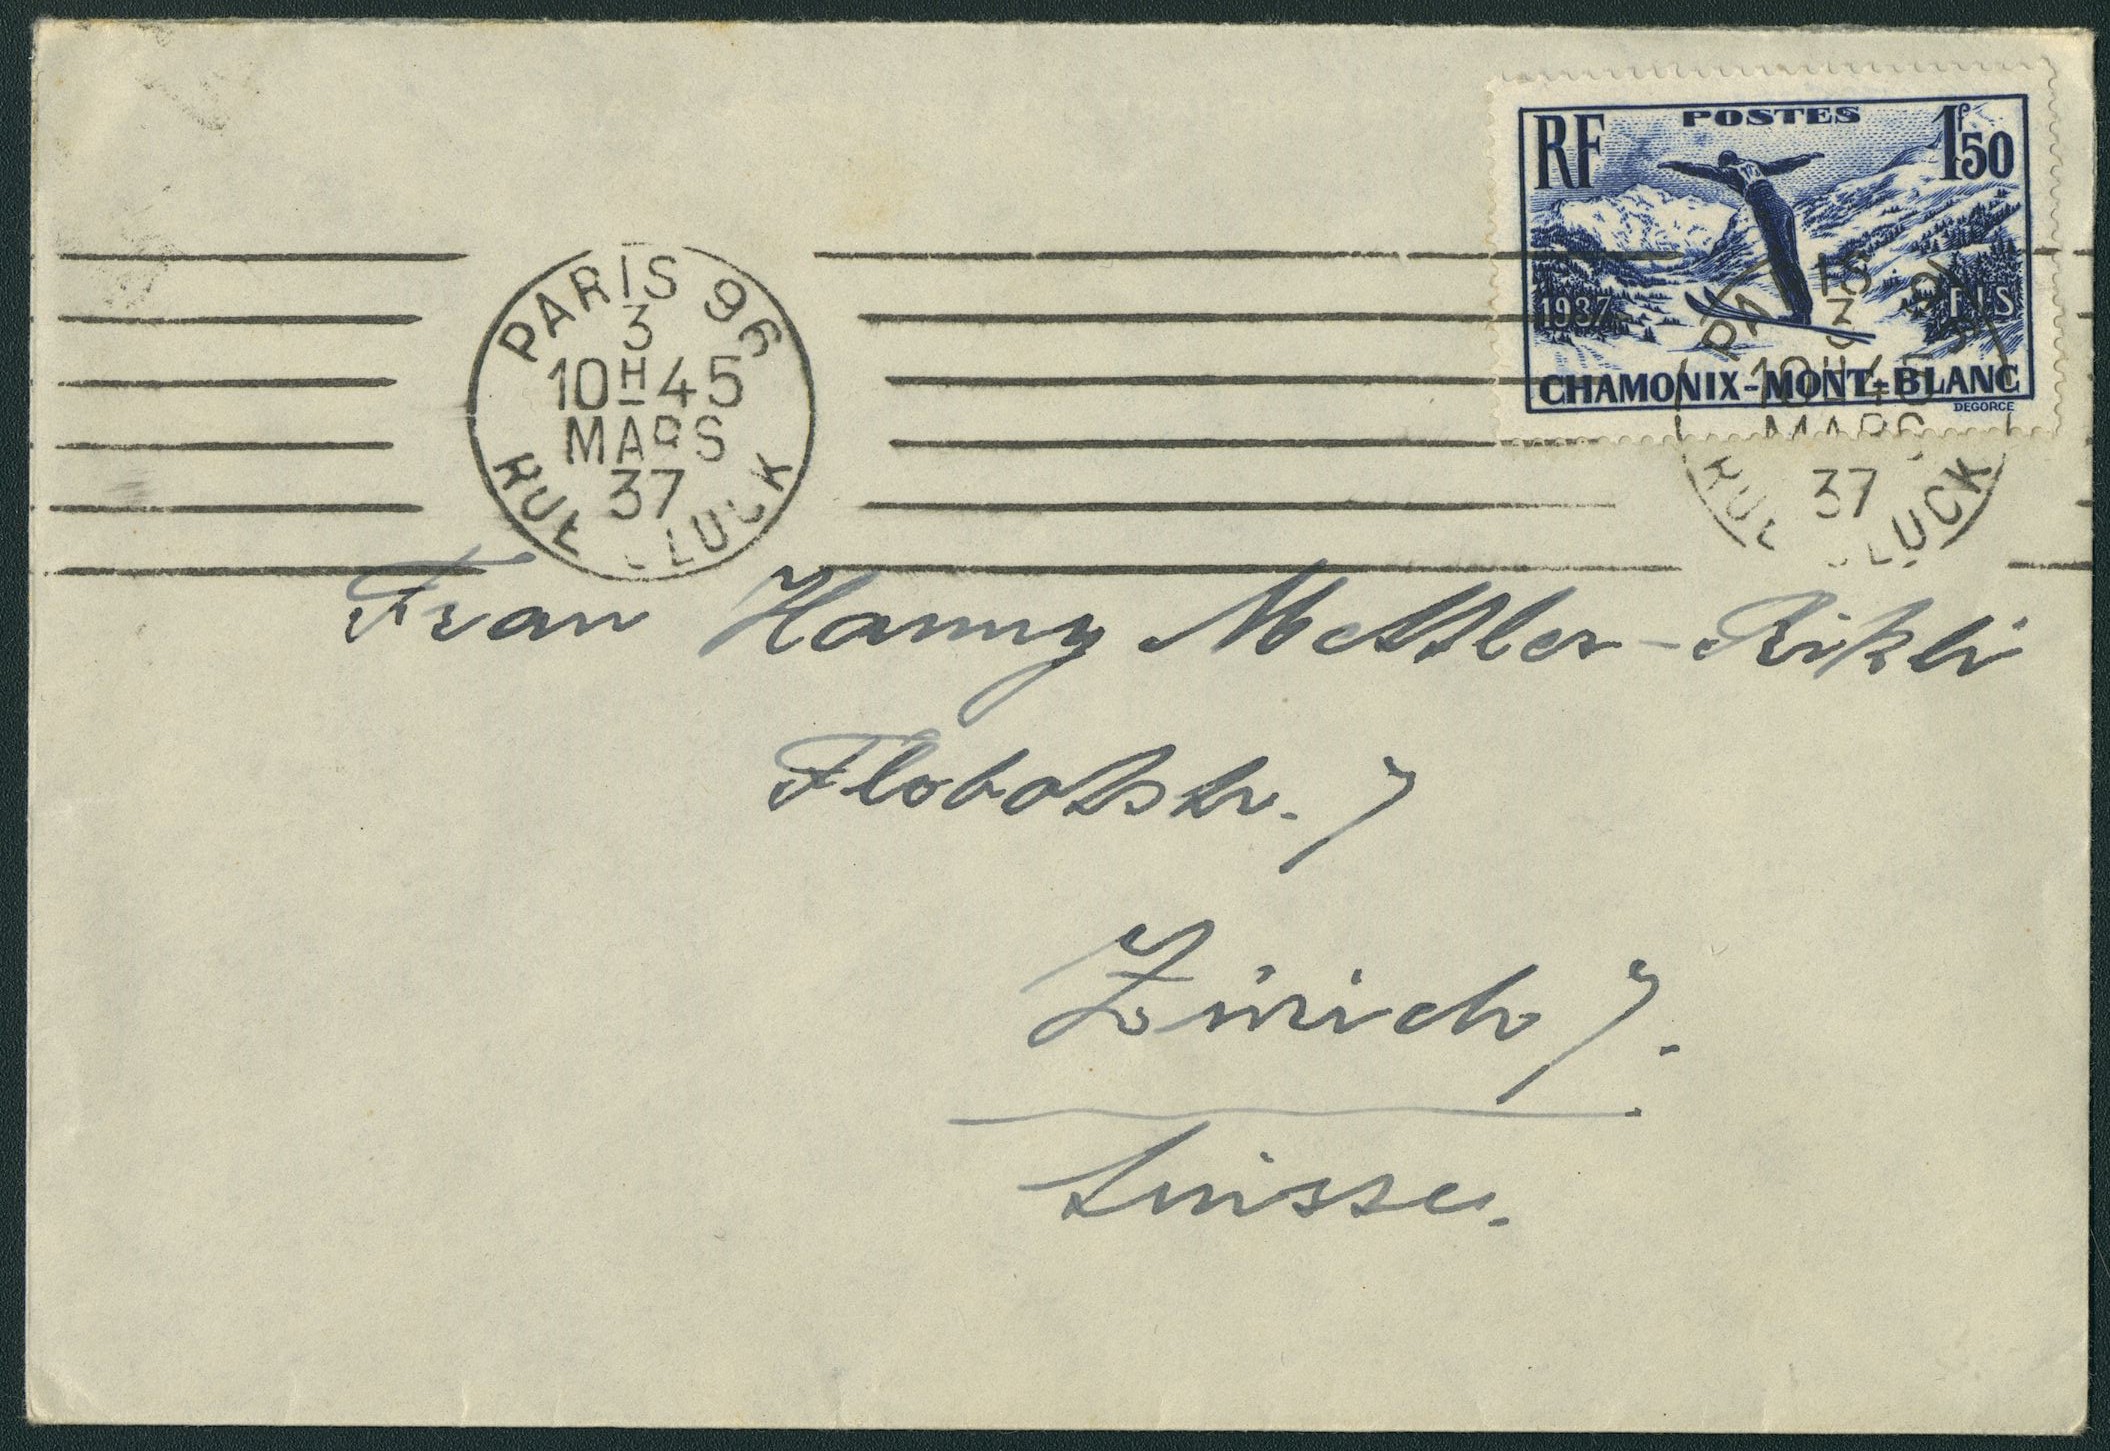 RF POSTES 1f50
1937 F.I.S
CHAMONIX-MONT-BLANC
DEGORCE
PARIS 96
3
10H45
MARS
37
RUE GLUCK
PARIS 96
3
10H45
MARS
37
RUE GLUCK
Frau Hanny Mettler-Rikli
Flobotstr. 7
Zürich 7.
Suisse.